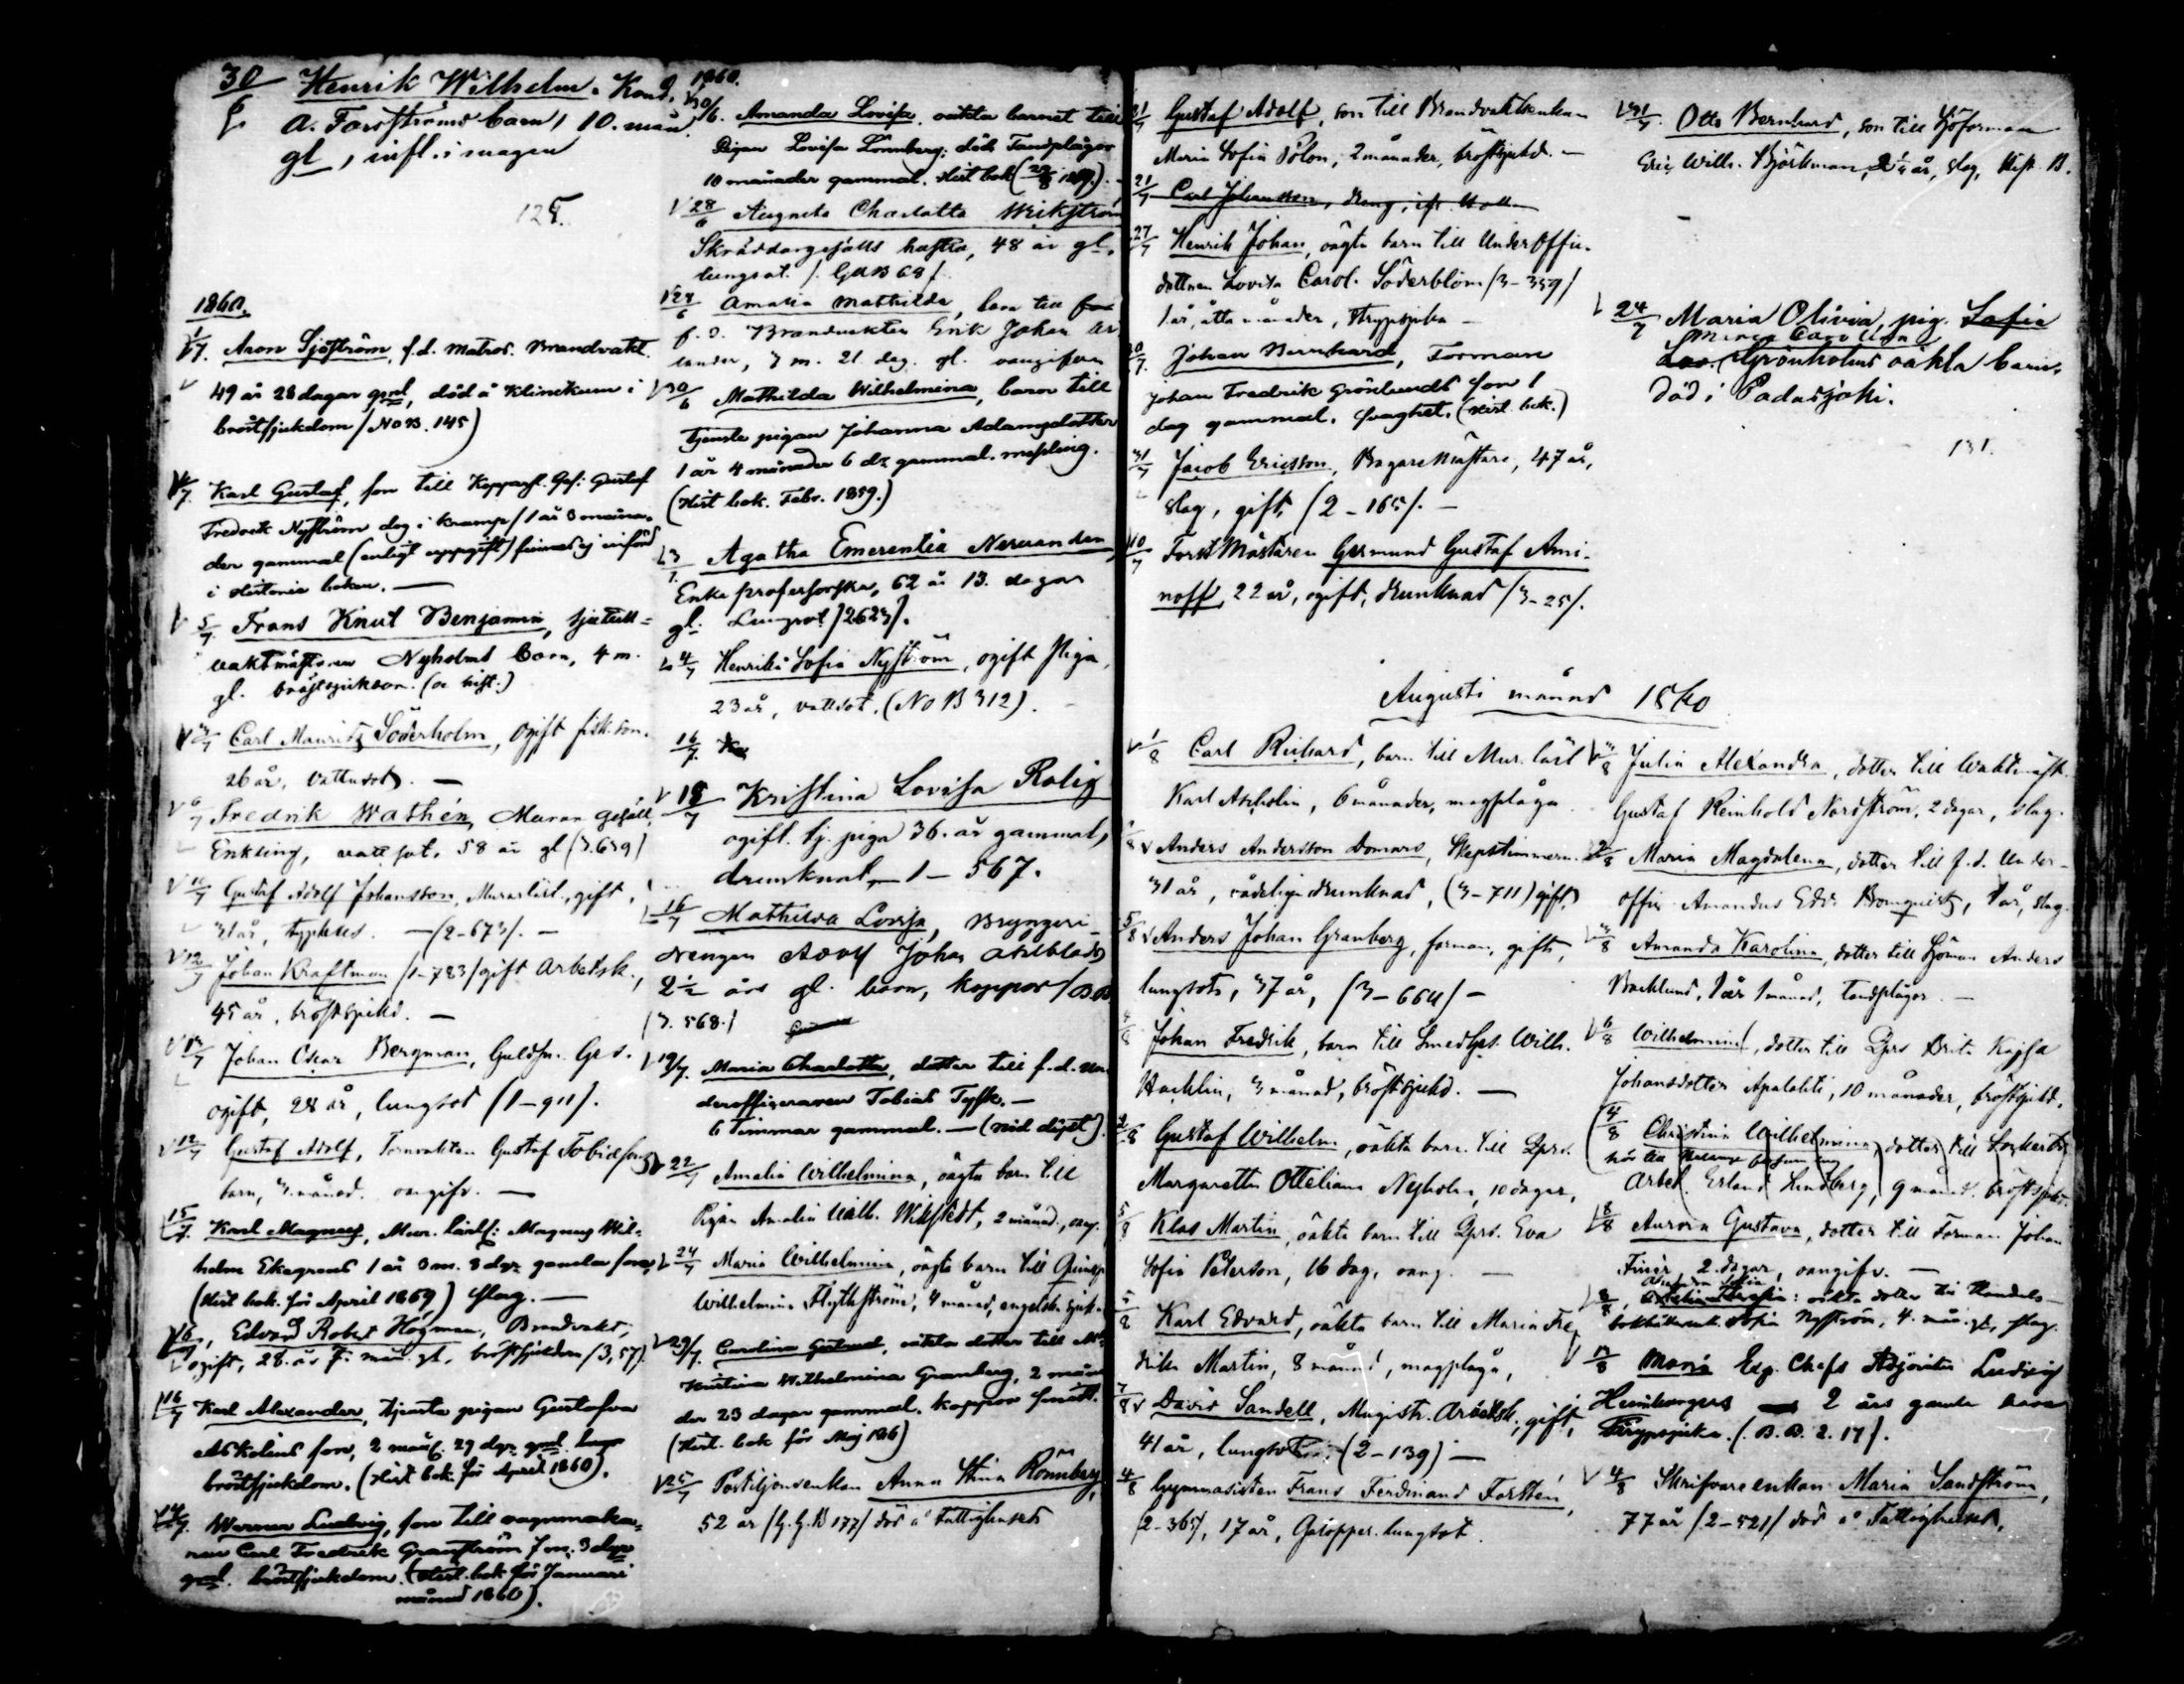 30 Henrik Wilhelm, Kond.
6 A. Forsströms barn, 10. mån
gl, infl. i magen
128.
1860.
1/7. Aron Sjöström, f.d. Matros. Brandvakt.
49 år 28 dagar gml, död å Klinikum i
bröstsjukdom (No B. 145)
Karl Gustaf, son till Kopparsl. Ges: Gustaf
Fredrik Nyström dog i kramp / 1 år 3 måna-
der gammal (enligt uppgift) finnes ej införd
i Historie boken. —
5/7 Frans Knut Benjamin, sjötull-
vaktmästaren Nyholms barn, 4 m.
gl. bröstsjukdom. (a hist.)
3/7 Carl Mauritz Söderholm, ogift fisk. son.
26 år, vattusot. —
6/7 Fredrik Wathén, Murare gesäll,
Enkling, vattsot, 58 år gl (3.639)
Gustaf Adolf Johansson, Murarlärl., gift,
31 år, typhus. — (2-673). —
12/7 Johan Kraftman (1-783) gift Arbetsk.,
45 år, bröstsjukd. —
Johan Oskar Bergman, Guldsm. Ges.
ogift, 28 år, lungsot (1-911).
12/7 Gustaf Adolf, Tornvakten Gustaf Tobiessons
barn, 3 månad. oangifv. —
15/7 Karl Magnus, Mur. lärl: Magnus Wil-
helm Ekegrens 1 år 3 m. 3 dgr gamla son,
(Hist bok. för April 1869) slag. —
16/7, Edvard Robert Högman, Brandvakt,
ogift, 28. år 7. mån. gl. bröstsjukdom (3,57).
16/7 Karl Alexander, tjenste pigan Gustafva
Askolins son, 2 mån. 29 dgr gml.
bröstsjukdom. (Hist bok. för April 1860).
Werner Ludvig, son till vagnmaka-
ren Carl Fredrik Granström 7 m. 3 dgr
gml. bröstsjukdom. (Hist. bok för Januari
månad 1860).
1860.
30/6. Amanda Lovisa, oäkta barnet till
Pigan Lovisa Lönnberg: död Tandplågor
10 månader gammal. Hist bok (29/8 1859). —
28/6 Augusta Charlotta Wrikström
Skräddargesälls hustru, 48 år gl.
lungsot. (GUB 68).
29/6 Amalia Mathilda, barn till
f. d. Brandvakten Erik Johan Ar
lander, 3 m. 21 dag. gl. oangifven
30/6 Mathilda Wilhelmina, barn till
tjenste pigan Johanna Adamsdotter
1 år 4 månader 6 dr gammal. messling.
(Hist bok. Febr. 1859.)
3/7. Agatha Emerentia Nervander
Enke professorska, 62 år 13. dagar
gl. Lungsot [2623].
4/7 Henrika Sofia Nyström, ogift Piga,
23 år, vattsot. (No B 312). —
16/7. Ka
18/7 Kristina Lovisa Rolig
ogift. tj. piga 36. år gammal,
drunknat, — 1 — 567.
16/7 Mathilda Lovisa, Bryggeri-
drengen Adolf Johan Ahlblads
2½ års gl. barn, koppor / B.B.
(3. 568.)
19/7. Maria Charlotta, dotter till f.d. un
derofficeraren Tobias Tysk. —
6 timmar gammal. — (nöd döpt).
22/7 Amalia Wilhelmina, oägta barn till
Pigan Amalia Ualb. Wikstedt, 2 månad., oang.
24/7 Maria Wilhelmina, oägta barn till Qvinsp
Wilhelmina Flythström, 4 månad, engelska sjuka
29/7. Carolina Gertrud, oäkta dotter till
Kristina Wilhelmina Granberg, 2 måna
der 23 dagar gammal. koppor
(Hist. bok för Maj 186)
25/7 Postiljonsenkan Anna Stina Rönnberg,
52 år (G.G.B 177) död å fattighuset
21/7 Gustaf Adolf, son till Brandvaktsenkan
Maria Sofia Polon, 2 månader, bröstsjukd. —
21/7 Carl Johansson, dreng,
27/7 Henrik Johan, oägta barn till Underoffic.
dottren Lovisa Carol. Söderblom (3-359)
1 år, åtta månader, strypsjuka —
30/7. Johan Bernhard, Forman
Johan Fredrik Grönlunds son 1
dag gammal. svaghet. (Hist. bok.)
31/7 Jacob Ericsson, Bagare Mästare, 47 år,
slag, gift, (2-165). —
10/7 Forst Mästaren Germund Gustaf Ami-
noff, 22 år, ogift, drunknad (3-25).
31/7. Otto Bernhard, son till Sjöforman
Eric Wilh. Björkman, slag, Hist. B.
24/7 Maria Olivia, pig. Sofia
Maria Carolina
Grönholms oäkta barn,
död i Padasjoki.
131.
Augusti månad 1860
1/8 Carl Richard, barn till Mur. lärl
Karl Ascholin, 6 månader, magplåga
Anders Andersson Domars, Skeppstimmerm.
31 år, vådeligen drunknad, (3-711) gift.
5/8 Anders Johan Granberg, forman, gift,
lungsot, 37 år, (3-664) —
Johan Fredrik, barn till SmedGes. Wilh.
Hacklin, 3 månad, bröstsjukd. —
2/8 Gustaf Wilhelm, oäkta barn till Qprs.
Margaretha Otteliana Nyholm, 10 dagar,
5/8 Klas Martin, oäkta barn till Qprs. Eva
Sofia Peterson, 16 dag, oang. —
Karl Edvard, oäkta barn till Maria Fre
drika Martin, 8 månad, magplåga,
7/8 David Sandell, Magistr. Arbetsk, gift,
41 år, lungsot (2-139) —
4/8 Gymnasisten Frans Ferdinand Forstén,
(2-365), 17 år, Galopper. lungsot.
Julia Alexandra, dotter till Waktmäst.
Gustaf Reinhold Nordström, 2 dagar, slag.
Maria Magdalena, dotter till f.d. Under-
offic Amandus Edv. Blomqvist, 1 år, slag.
3/8 Amanda Karolina, dotter till Sjöman Anders
Backlund, 1 år 1 månad, tandplågor. —
6/8 Wilhelmina, dotter till Qprs Brita Kajsa
Johansdotter Apalahti, 10 månader, bröstsjukd.
4/8 Christina Wilhelmina, dotter till Sockerbr
Arbet. Erland Lindberg, 9 månd. bröstsjukd.
8/8 Aurora Gustava, dotter till Forman Johan
Finér, 2 dagar, oangifv. —
oäkta dotter till Handels-
Sofia Nyström, 4. mån. gl, slag.
Maria Exp. Chefs Adjointen Ludvig
Heimbergers 2 års gamla barn
Strypsjuka. (B.B. 2. 17).
4/8 Skrifvareenkan Maria Sandström,
77 år (2-521) död å Fattighuset.